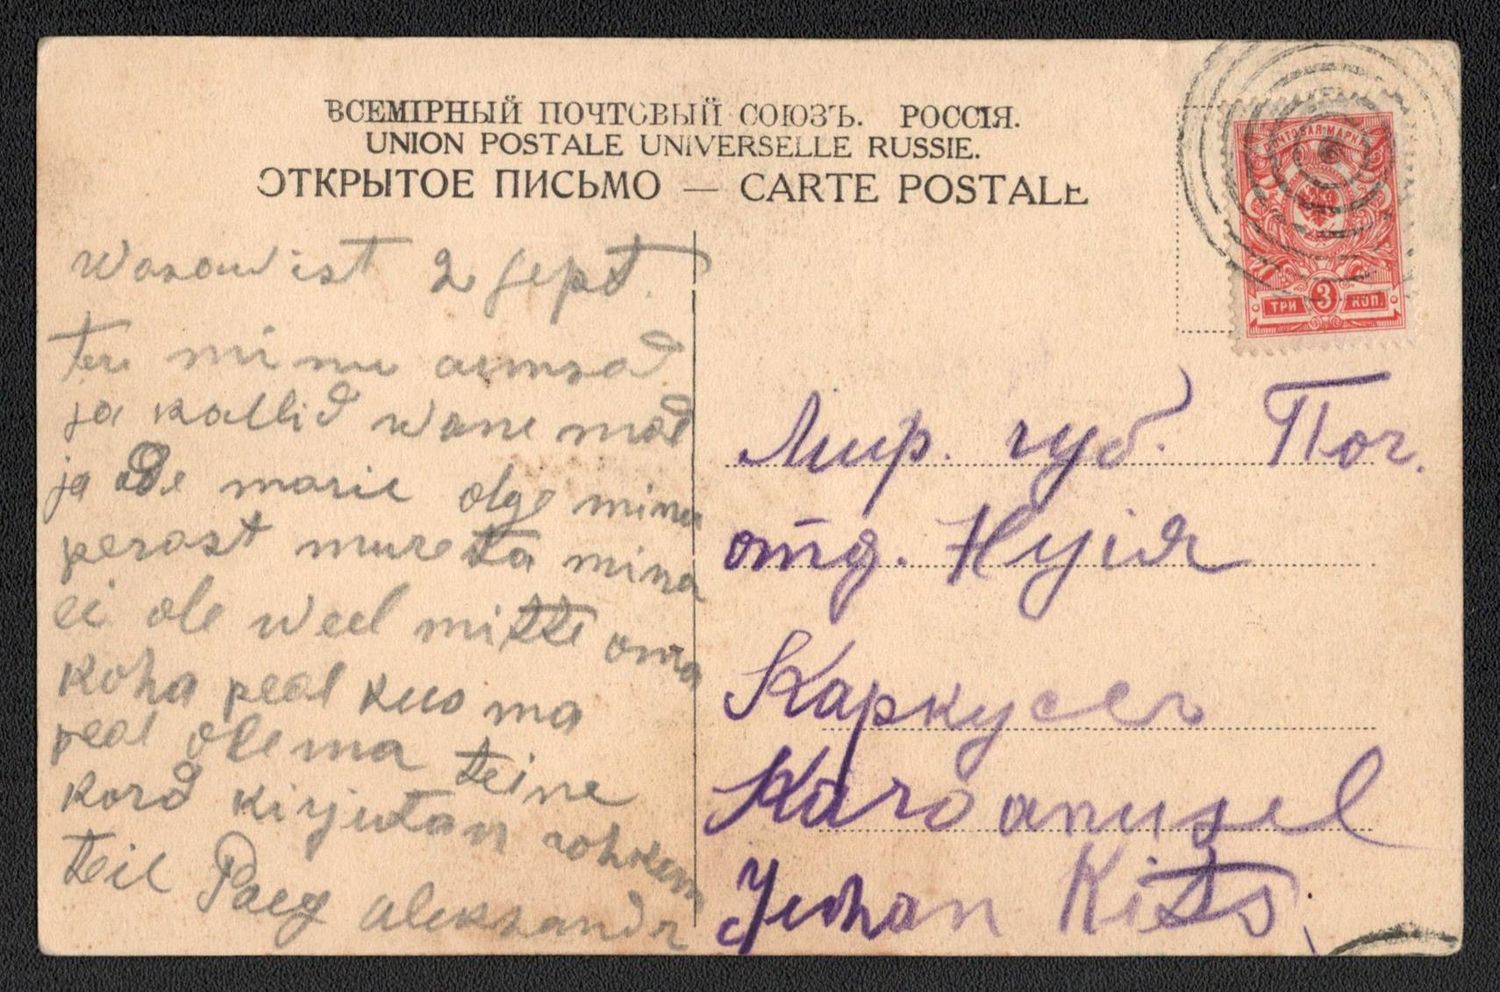 ВСЕМІРНЫЙ ПОЧТОВЫЙ СОЮЗЪ. РОССІЯ.
UNION POSTALE UNIVERSELLE RUSSIE.
ОТКРЫТОЕ ПИСЬМО — CARTE POSTALE
ПОЧТОВАЯ МАРКА
ТРИ 3 КОП.
Warawist 2 sept.
tere minu armsad
ja kallid wanemad
ja Marie olge minu
perast mureta mina
ei ole weel mitte oma
koha peal kuo ma
peal olema teine
kord kirjutan rohkem
teil Paeg aleksandr
Лиф. губ. Поч.
отд. Нуія
Каркусъ
anusel
Juhan Kitts